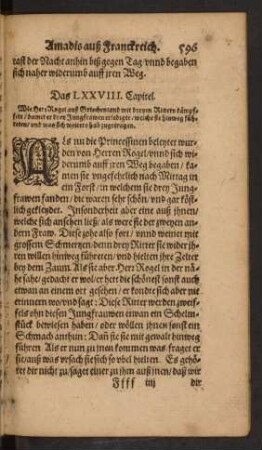 Amadis auß Franckreich. 596
rast der Nacht anhin biß gegen Tag / vnnd begaben
sich naher widerumb auff jren Weg.
Das LXXVIII. Capitel.
Wie Herr Rogel auß Griechenland mit dreyen Rittern kämpf-
fete / damit er drey Jungfrawen erledigte / welche sie hinweg füh-
reten / vnd was sich weiters hab zugetragen.
ALs nu die Princessinnen beleytet wur-
den von Herren Rogel / vnnd sich wi-
derumb auff jren Weg begaben / ka-
men sie vngefehrlich nach Mittag in
ein Forst / in welchem sie drey Jung-
frawen fanden / die waren sehr schön / vnd gar köst-
lich gekleydet. Insonderheit aber eine auß jhnen /
welche sich ansehen ließ / als were sie der zweyen an-
dern Fraw. Diese zohe also fort / vnnd weinet mit
grossem Schmertzen / denn drey Ritter sie wider jh-
ren willen hinweg führeten / vnd hielten jhre Zelter
bey dem Zaum. Als sie aber Herr Rogel in der nä-
he sahe / gedacht er wol / er het die schönest sonst auch
etwan an einem ort gesehen / er kondte sich aber nit
erinnern wo / vnd sagt: Diese Ritter werden zweif-
fels ohn diesen Jungfrauwen etwan ein Schelm-
stück bewiesen haben / oder wöllen jhnen sonst ein
Schmach anthun: Dañ sie sie mit gewalt hinweg
führen. Als er nun zu jnen kommen was / fraget er
sie / auß was vrsach sie sich so vbel hielten. Es gehö-
ret dir nicht zu / saget einer zu jhm auß jnen / daß wir
Ffff iiij dir